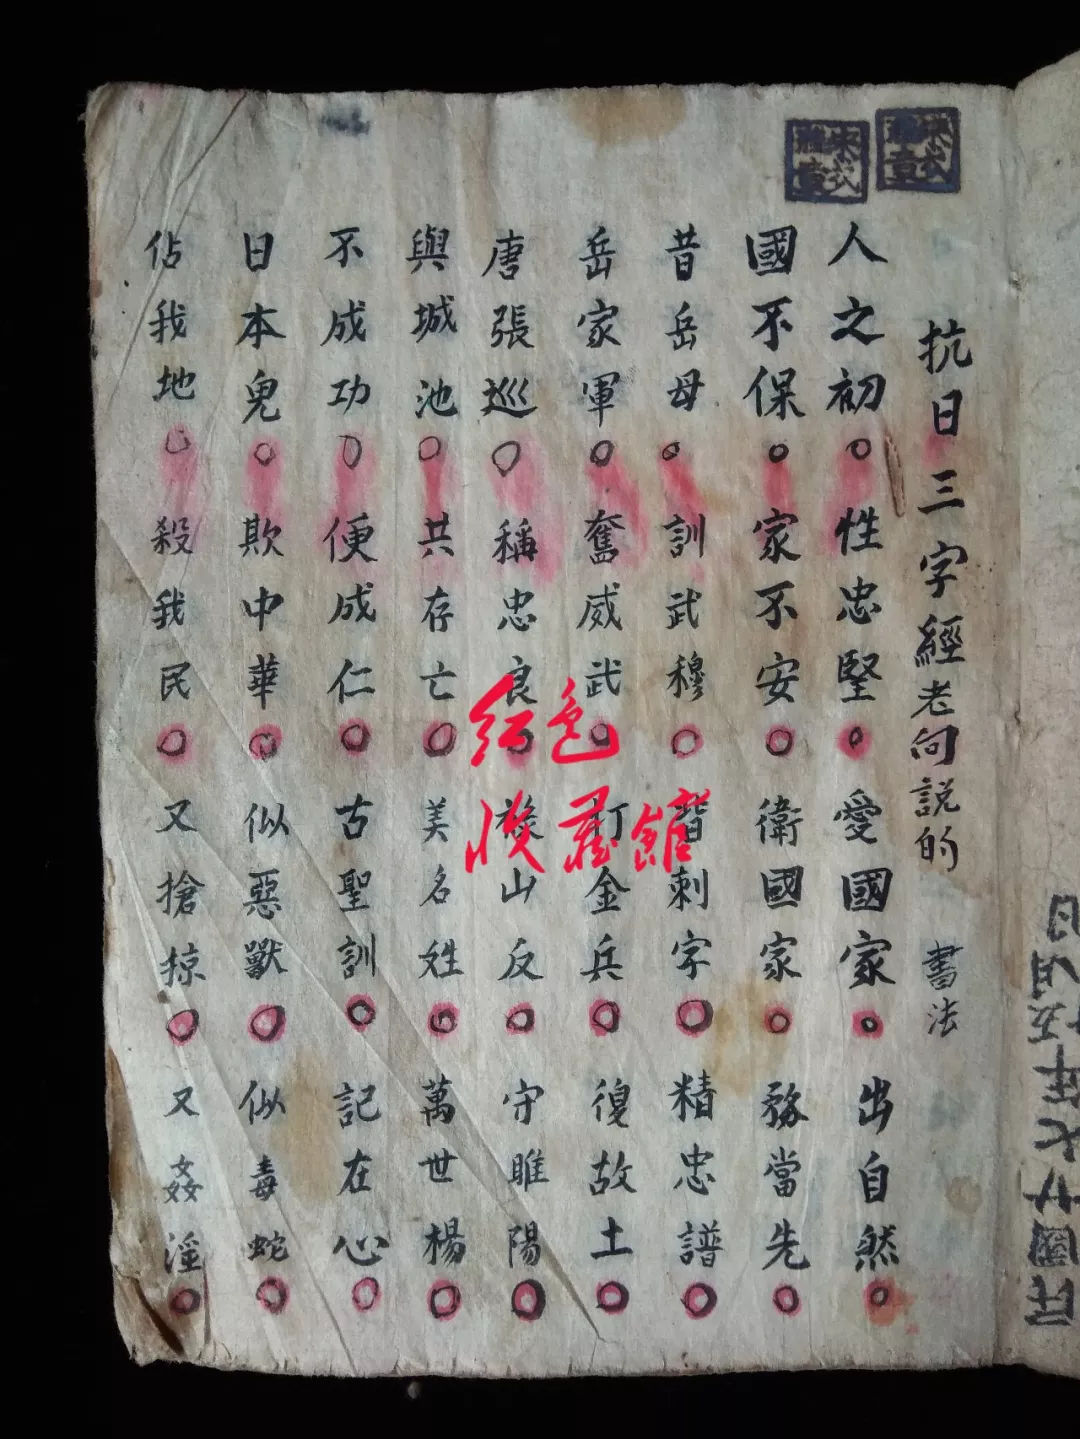 抗日三字經老向說的 書法
人之初○性忠堅○愛國家○出自然○
國不保○家不安○衛國家○務當先○
昔岳母○訓武穆○背刺字○精忠譜○
岳家軍○奮威武○打金兵○復故土○
唐張巡○稱忠良○祿山反○守睢陽○
與城池○共存亡○美名姓○萬世楊○
不成功○便成仁○古聖訓○記在心○
日本鬼○欺中華○似惡獸○似毒蛇○
佔我地○殺我民○又搶掠○又姦淫○
民國廿七年五月
红色
收藏館